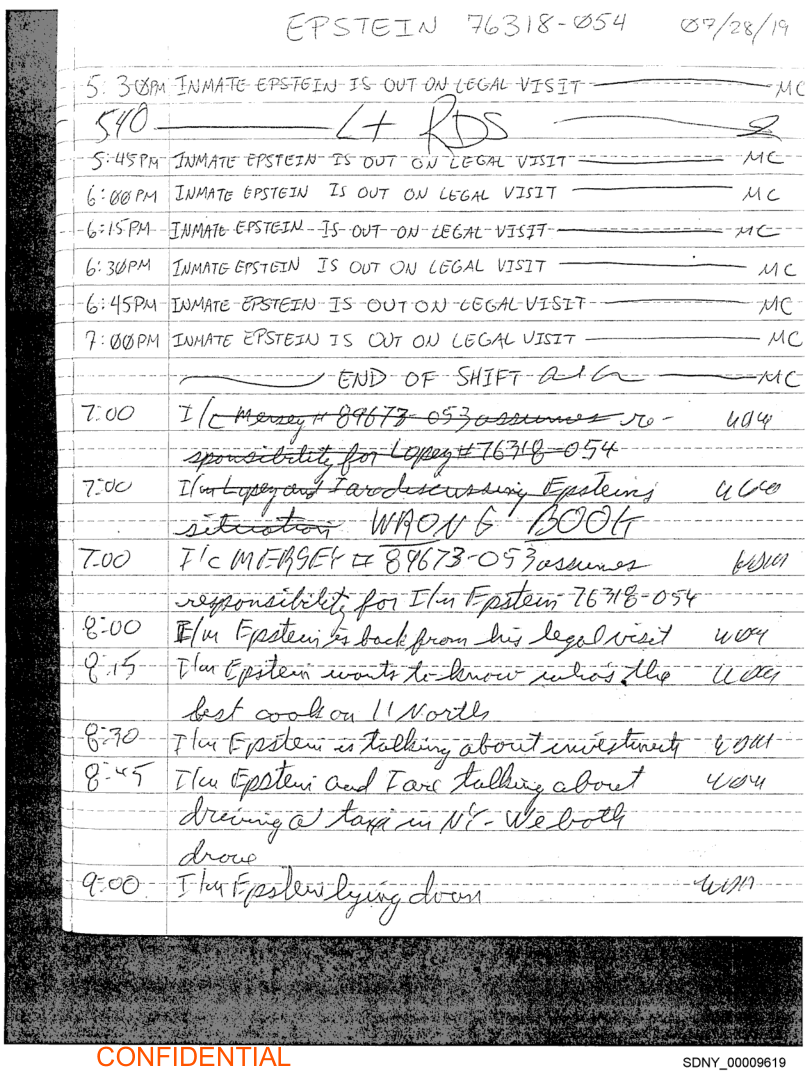 EPSTEIN 76318-054 07/28/19
5:30PM INMATE EPSTEIN IS OUT ON LEGAL VISIT MC
540 Lt RDS
5:45PM INMATE EPSTEIN IS OUT ON LEGAL VISIT MC
6:00PM INMATE EPSTEIN IS OUT ON LEGAL VISIT MC
6:15PM INMATE EPSTEIN IS OUT ON LEGAL VISIT MC
6:30PM INMATE EPSTEIN IS OUT ON LEGAL VISIT MC
6:45PM INMATE EPSTEIN IS OUT ON LEGAL VISIT MC
7:00PM INMATE EPSTEIN IS OUT ON LEGAL VISIT MC
END OF SHIFT MC
7:00 I/c Mersey # 89673-053 assumes re-
sponsibility for Lopez # 76318-054
7:00 I/m Lopez and I are discussing Epsteins
situation WRONG BOOK
7:00 I/c MERSEY # 89673-053 assumes
responsibility for I/m Epstein 76318-054
8:00 I/m Epstein is back from his legal visit
8:15 I/m Epstein wants to know who's the
best cook on 11 North
8:30 I/m Epstein is talking about investments
8:45 I/m Epstein and I are talking about
driving a taxi in NY - We both
drove
9:00 I/m Epstein lying down
CONFIDENTIAL
SDNY_00009619